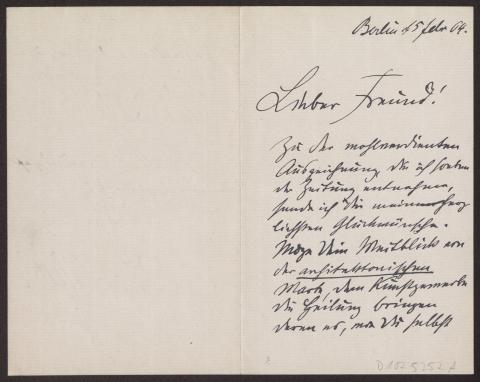 Berlin 15 febr 04.
Lieber Freund!
Zu der wohlverdienten
Auszeichnung die ich soeben
der Zeitung entnehme,
sende ich Dir meine herz
lichsten Glückwünsche.
Möge Dein Weitblick von
der architektonischen
Warte, dem Kunstgewerbe
die Heilung bringen
deren es, wie Du selbst
D 102 5252 A